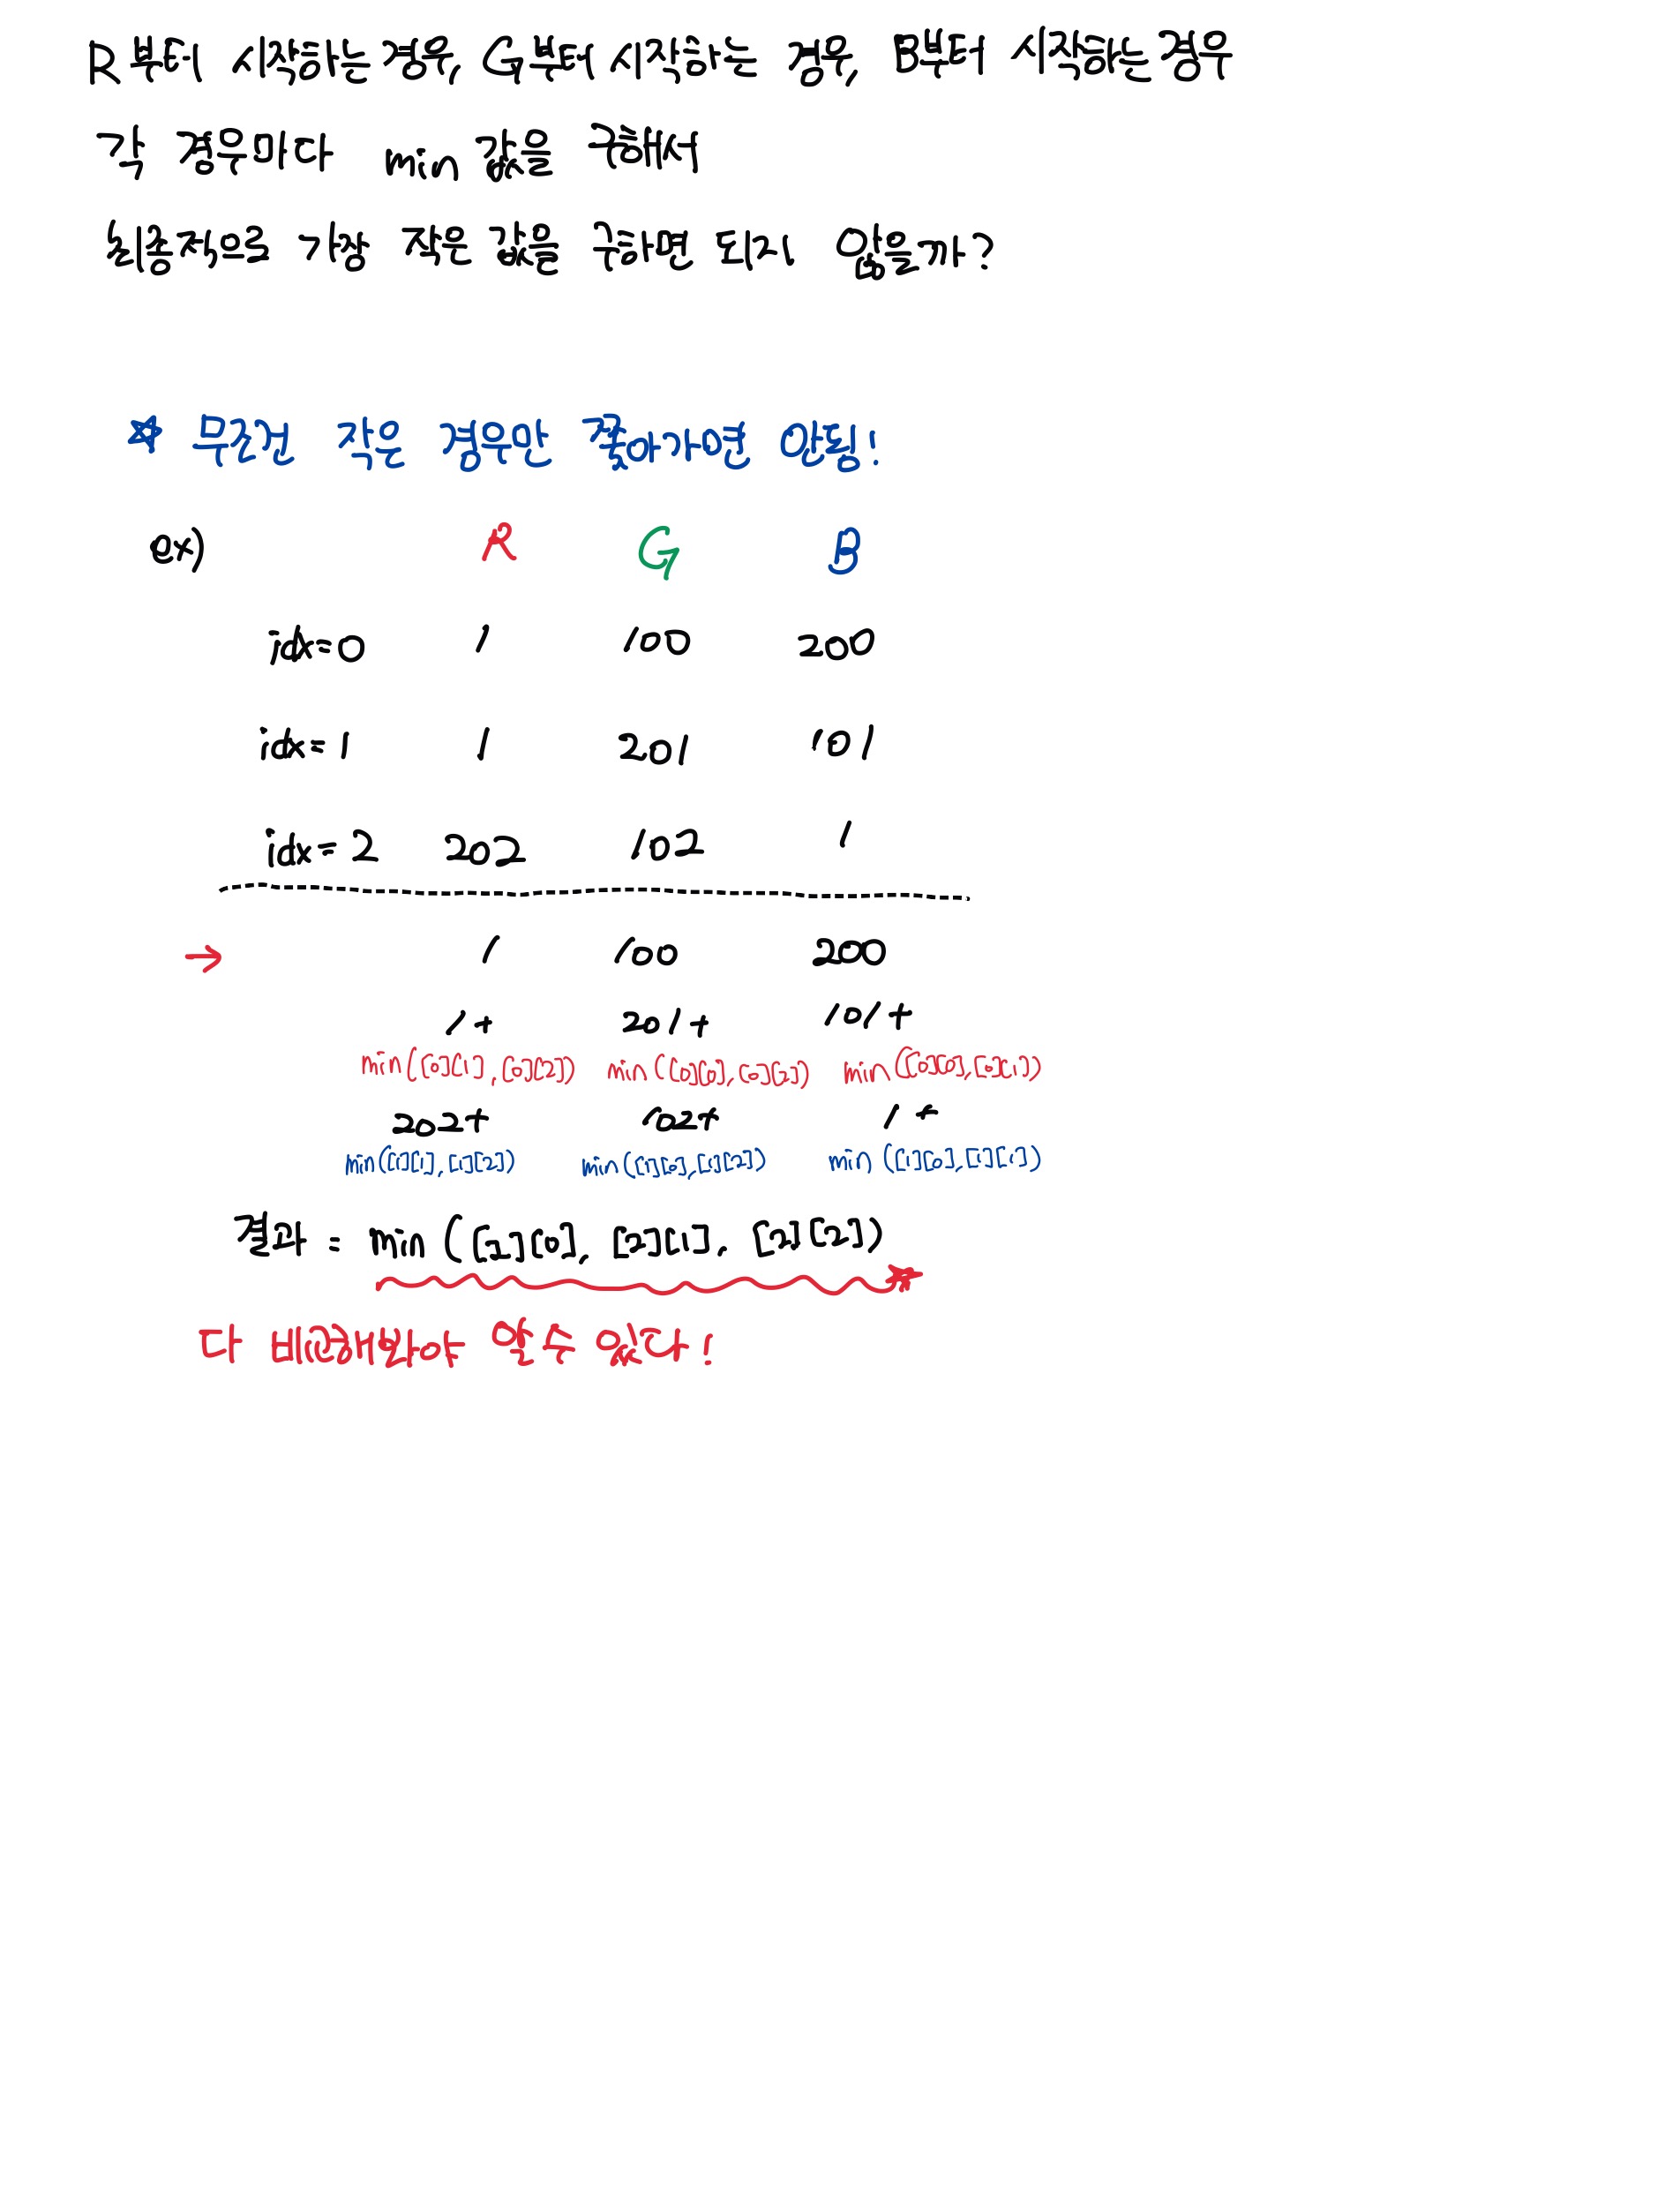 R부터 시작하는 경우, G부터 시작하는 경우, B부터 시작하는 경우
각 경우마다 min 값을 구해서
최종적으로 가장 작은 값을 구하면 되지 않을까?
☆ 무조건 작은 경우만 쫓아가면 안됨!
ex) R G B
idx=0 1 100 200
idx=1 1 201 101
idx=2 202 102 1
→ 1 100 200
1+ 201+ 101+
min([0][1], [0][2]) min([0][0], [0][2]) min([0][0], [0][1])
202+ 102+ 1+
min([1][1], [1][2]) min([1][0], [1][2]) min([1][0], [1][1])
결과 = min([2][0], [2][1], [2][2])
다 비교해봐야 알 수 있다!